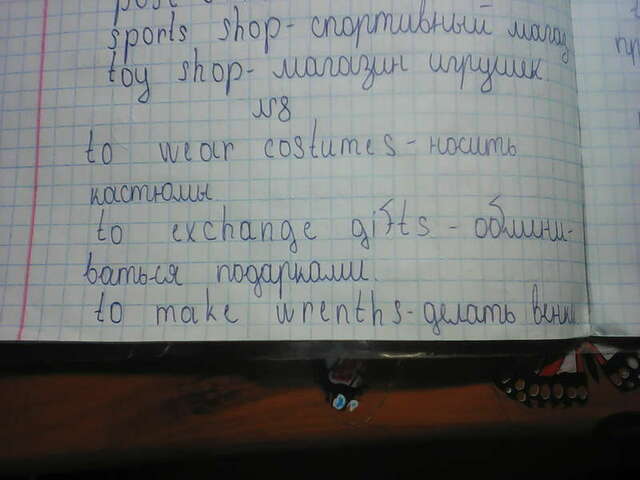 sports shop - спортивный магаз
toy shop - магазин игрушек
№8
to wear costumes - носить
кастюмы
to exchange gifts - обмини-
ваться подарками.
to make wrenths - делать венк